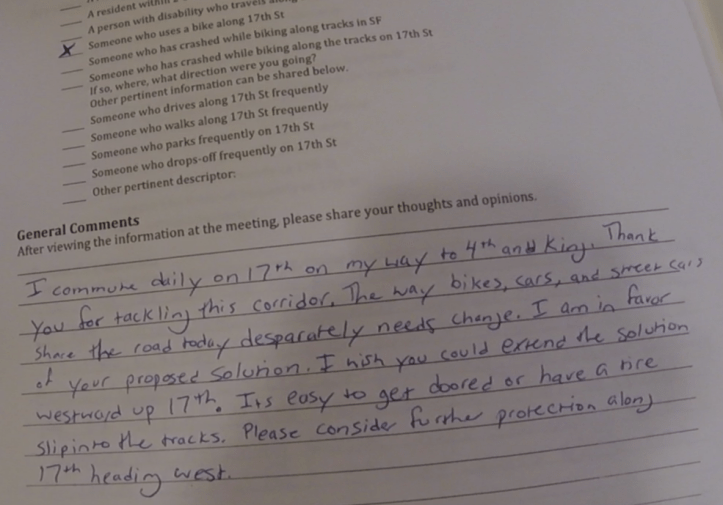 A resident within
A person with disability who travels along
X Someone who uses a bike along 17th St
Someone who has crashed while biking along tracks in SF
Someone who has crashed while biking along the tracks on 17th St
If so, where, what direction were you going?
Other pertinent information can be shared below.
Someone who drives along 17th St frequently
Someone who walks along 17th St frequently
Someone who parks frequently on 17th St
Someone who drops-off frequently on 17th St
Other pertinent descriptor:
General Comments
After viewing the information at the meeting, please share your thoughts and opinions.
I commute daily on 17th on my way to 4th and King. Thank
you for tackling this corridor. The way bikes, cars, and street cars
share the road today desparately needs change. I am in favor
of your proposed solution. I wish you could extend the solution
westward up 17th. Its easy to get doored or have a tire
slip into the tracks. Please consider further protection along
17th heading west.